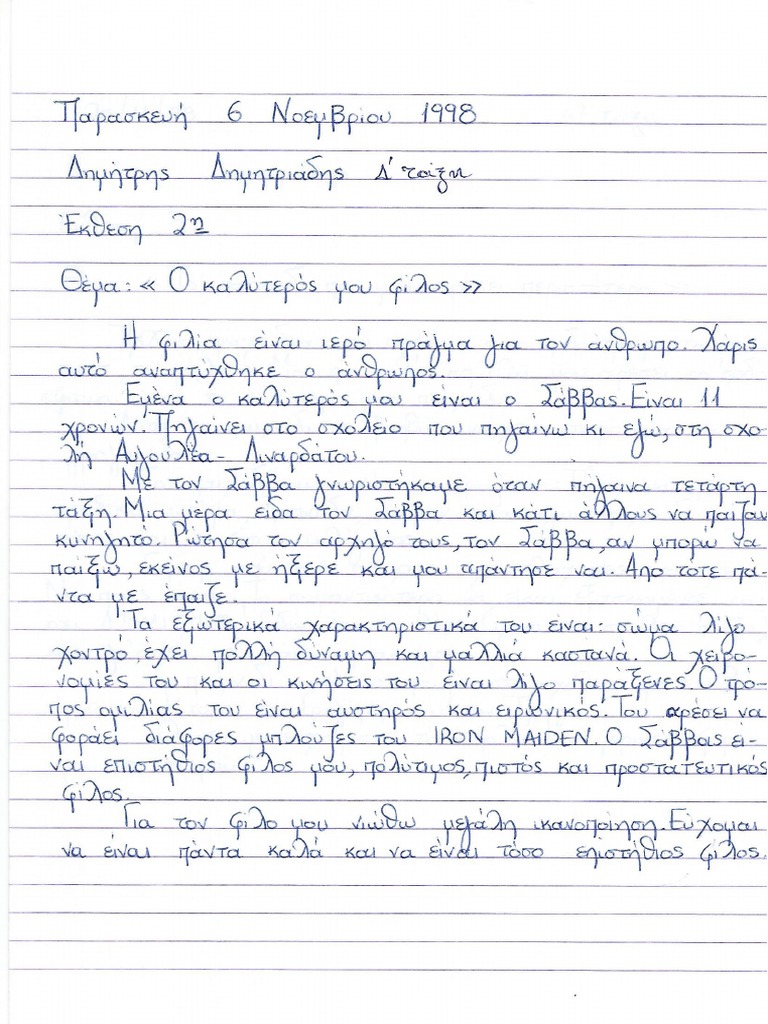 Παρασκευή 6 Νοεμβρίου 1998
Δημήτρης Δημητριάδης Δ' τάξη
Έκθεση 2η
Θέμα: « Ο καλύτερός μου φίλος »
Η φιλία είναι ιερό πράγμα για τον άνθρωπο. Χάρις
αυτό αναπτύχθηκε ο άνθρωπος.
Εμένα ο καλύτερός μου είναι ο Σάββας. Είναι 11
χρονών. Πηγαίνει στο σχολείο που πηγαίνω κι εγώ, στη σχο-
λή Αυγουλέα - Λιναρδάτου.
Με τον Σάββα γνωριστήκαμε όταν πήγαινα τετάρτη
τάξη. Μια μέρα είδα τον Σάββα και κάτι άλλους να παίζαν
κυνηγητό. Ρώτησα τον αρχηγό τους, τον Σάββα, αν μπορώ να
παίξω, εκείνος με ήξερε και μου απάντησε ναι. Από τότε πά-
ντα με έπαιζε.
Τα εξωτερικά χαρακτηριστικά του είναι: σώμα λίγο
χοντρό, έχει πολλή δύναμη και μαλλιά καστανά. Οι χειρο-
νομίες του και οι κινήσεις του είναι λίγο παράξενες. Ο τρό-
πος ομιλίας του είναι αυστηρός και ειρωνικός. Του αρέσει να
φοράει διάφορες μπλούζες του IRON MAIDEN. Ο Σάββας εί-
ναι επιστήθιος φίλος μου, πολύτιμος, πιστός και προστατευτικός
φίλος.
Για τον φίλο μου νιώθω μεγάλη ικανοποίηση. Εύχομαι
να είναι πάντα καλά και να είναι τόσο επιστήθιος φίλος.